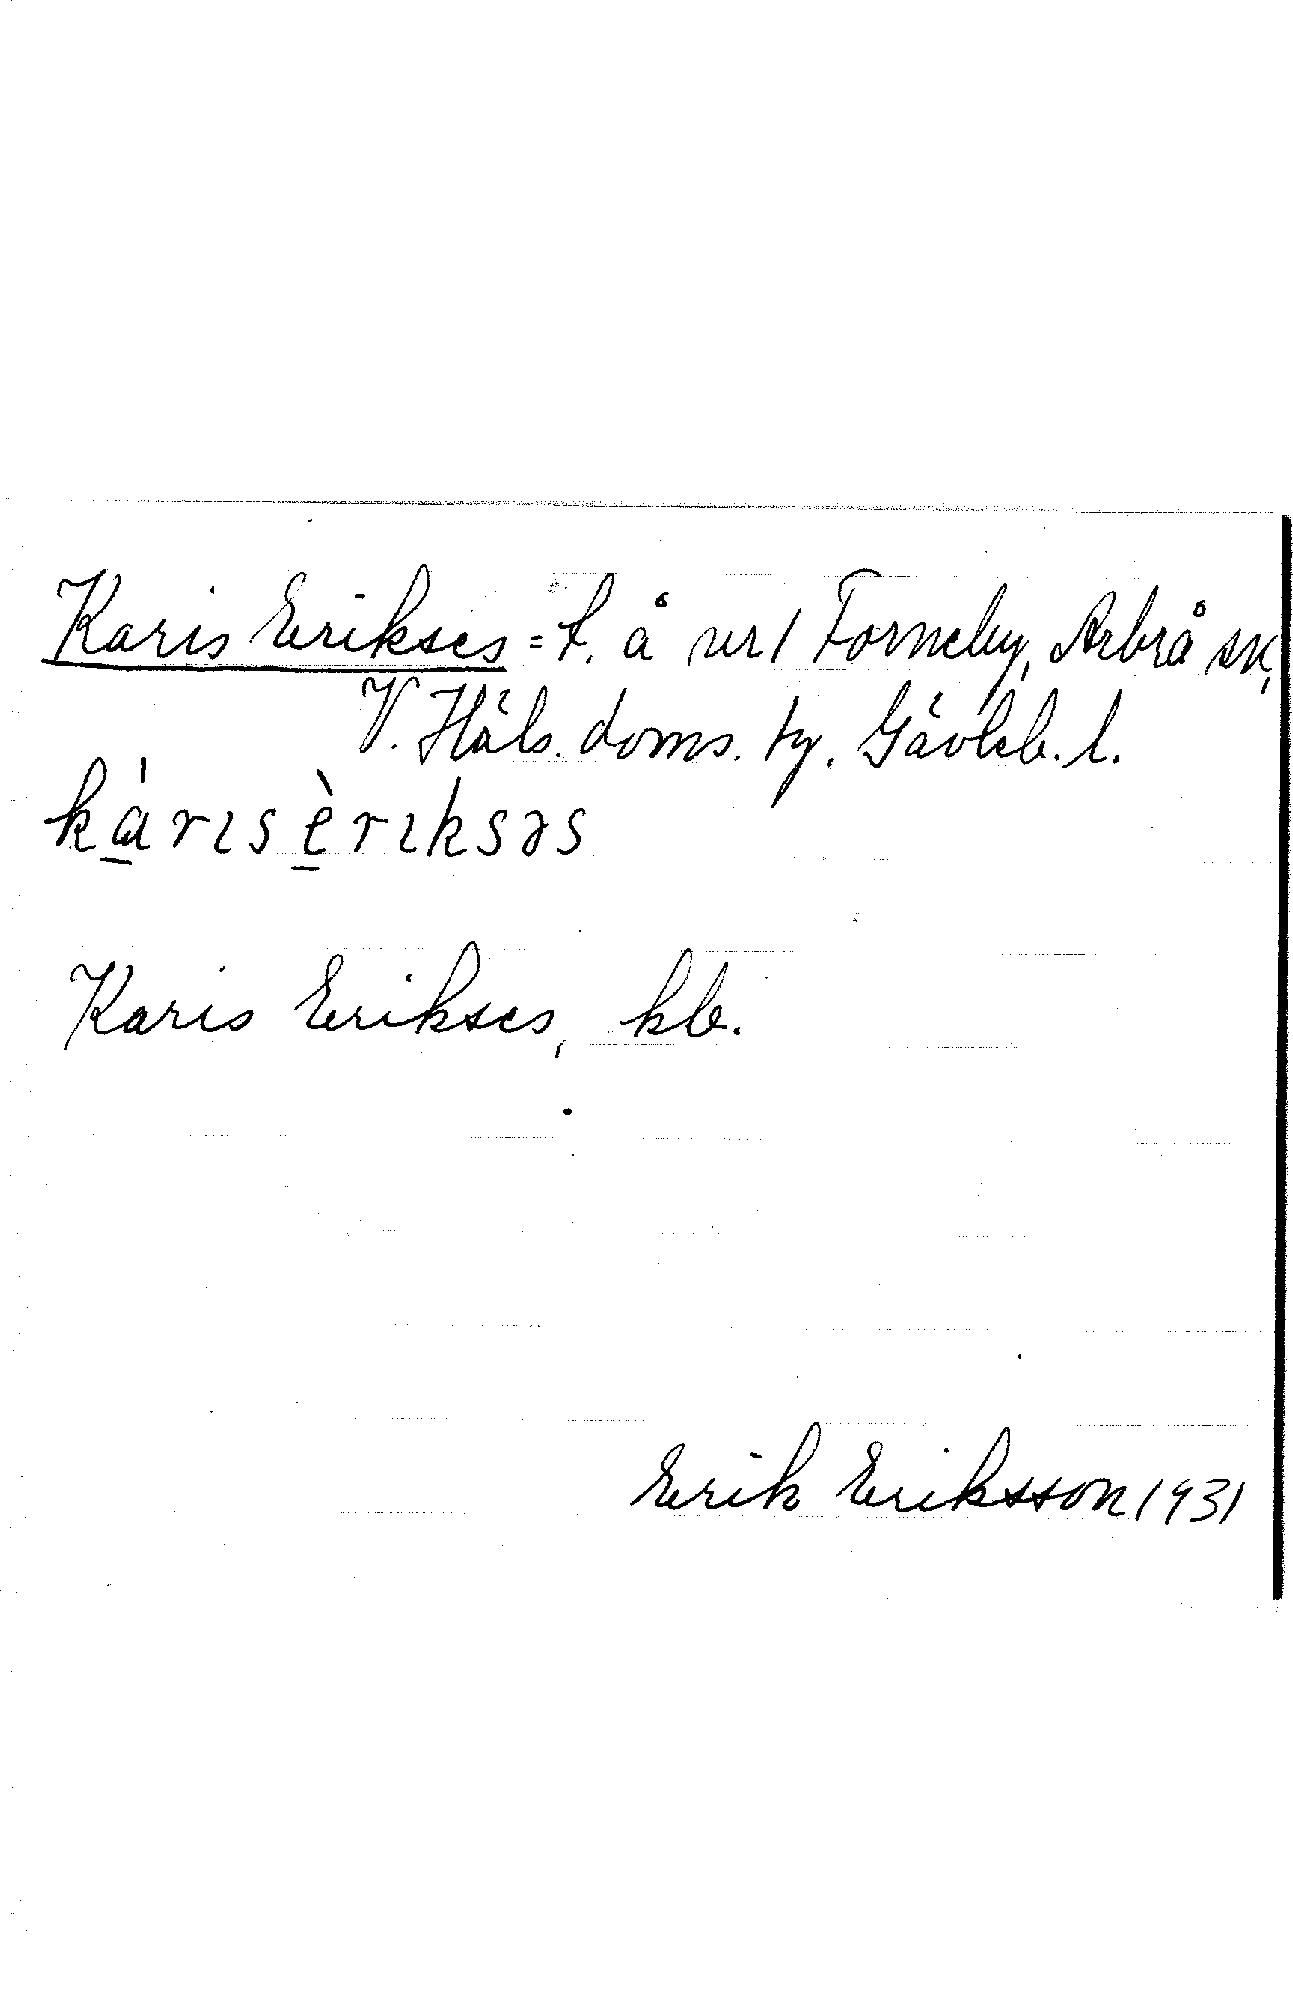 Karis Erikses = t. å nr 1 Forneby, Arbrå sn,
V. Häls. doms. hg. Gävleb. l.
kàrɩs èrɩksəs
Karis Erikses, kb.
Erik Eriksson 1931